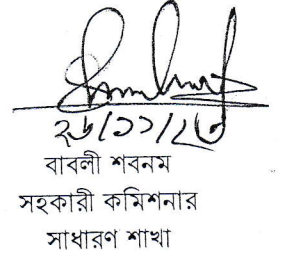 ২৬/১১/২৩
বাবলী শবনম
সহকারী কমিশনার
সাধারণ শাখা